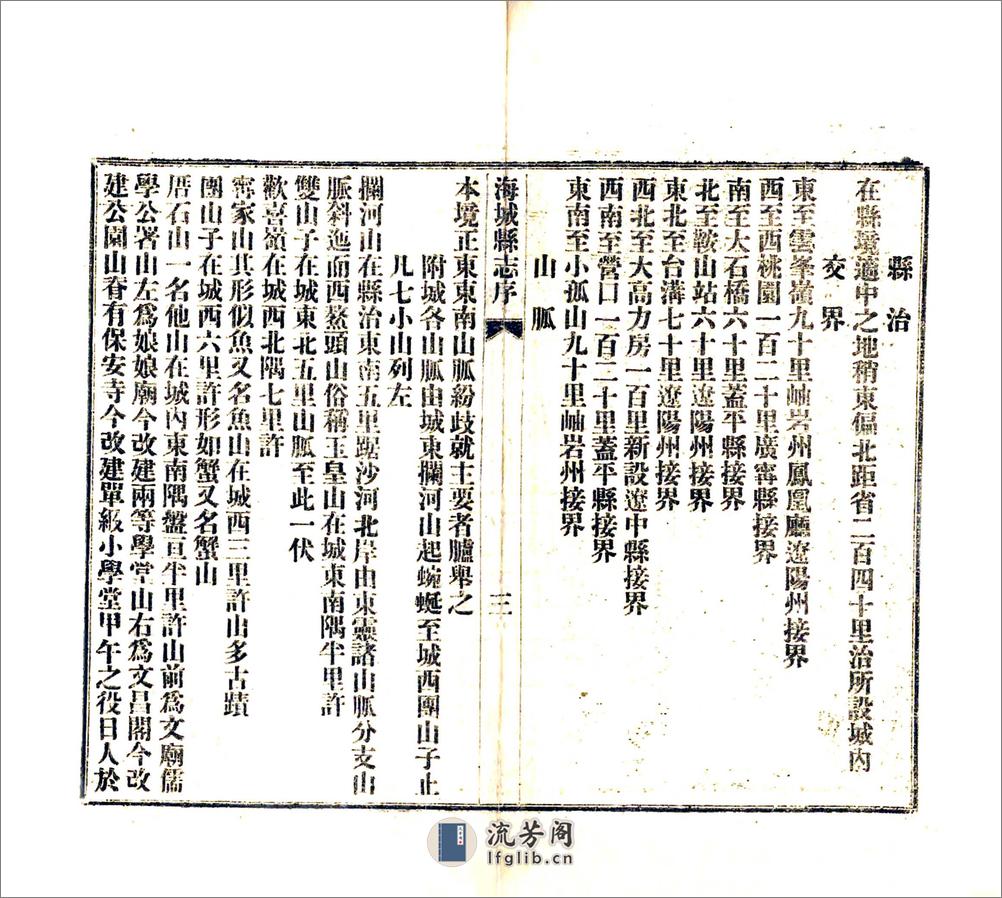 縣治
在縣境適中之地稍東偏北距省二百四十里治所設城內
交界
東至雲峯嶺九十里岫岩州鳳凰廳遼陽州接界
西至西桃園一百二十里廣甯縣接界
南至大石橋六十里蓋平縣接界
北至鞍山站六十里遼陽州接界
東北至台溝七十里遼陽州接界
西北至大高力房一百里新設遼中縣接界
西南至營口一百二十里蓋平縣接界
東南至小孤山九十里岫岩州接界
山脈
海城縣志序
三
本境正東東南山脈紛歧就主要者臚舉之
附城各山脈由城東攔河山起蜿蜒至城西團山子止
凡七小山列左
攔河山在縣治東南五里踞沙河北岸由東靈諸山脈分支山
脈斜迤而西鰲頭山俗稱玉皇山在城東南隅半里許
雙山子在城東北五里山脈至此一伏
歡喜嶺在城西北隅七里許
甯家山其形似魚又名魚山在城西三里許山多古蹟
團山子在城西六里許形如蟹又名蟹山
厝石山一名他山在城內東南隅盤亘半里許山前爲文廟儒
學公署山左爲娘娘廟今改建兩等學堂山右爲文昌閣今改
建公園山脊有保安寺今改建單級小學堂甲午之役日人於
流芳阁
lfglib.cn